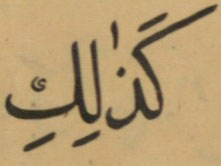 كَذٰلِكِ